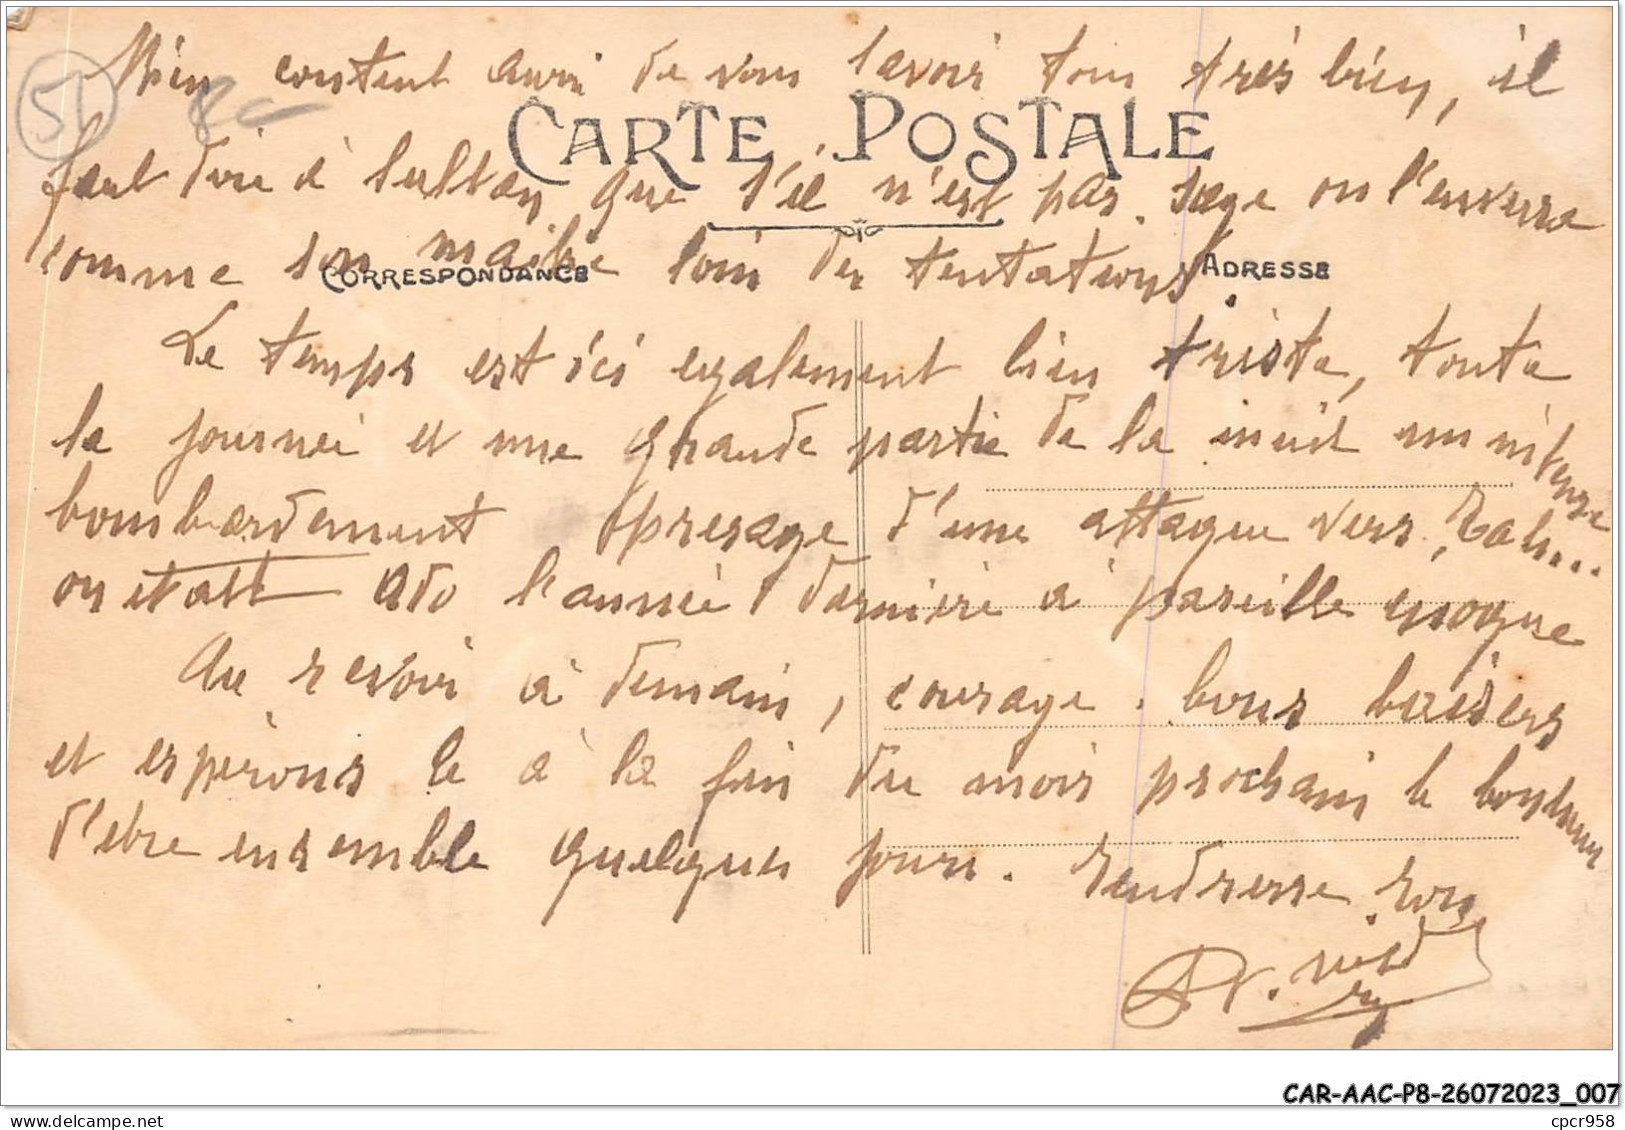 51
Bien content aussi de vous savoir tous très bien, il
CARTE POSTALE
faut dire à sultan que s'il n'est pas sage on l'enverra
comme son maitre loin des tentations.
CORRESPONDANCE
ADRESSE
Le temps est ici egalement bien triste, toute
la journée et une grande partie de la nuit un intense
bombardement presage d'une attaque vers Tah...
on etait l'année dernière à pareille epoque
Au revoir à demain, courage. bons baisers
et esperons le à la fin du mois prochain le bonheur
d'etre ensemble quelques jours. Tendresse
CAR-AAC-P8-26072023_007
cpcr958